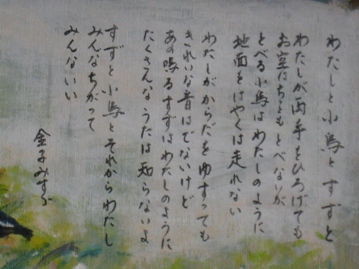 わたしと小鳥とすずと
わたしが両手をひろげても
お空はちっともとべないが
とべる小鳥はわたしのように
地面をはやくは走れない
わたしがからだをゆすっても
きれいな音はでないけど
あの鳴るすずはわたしのように
たくさんなうたは知らないよ
すずと小鳥とそれからわたし
みんなちがって
みんないい
金子みすゞ